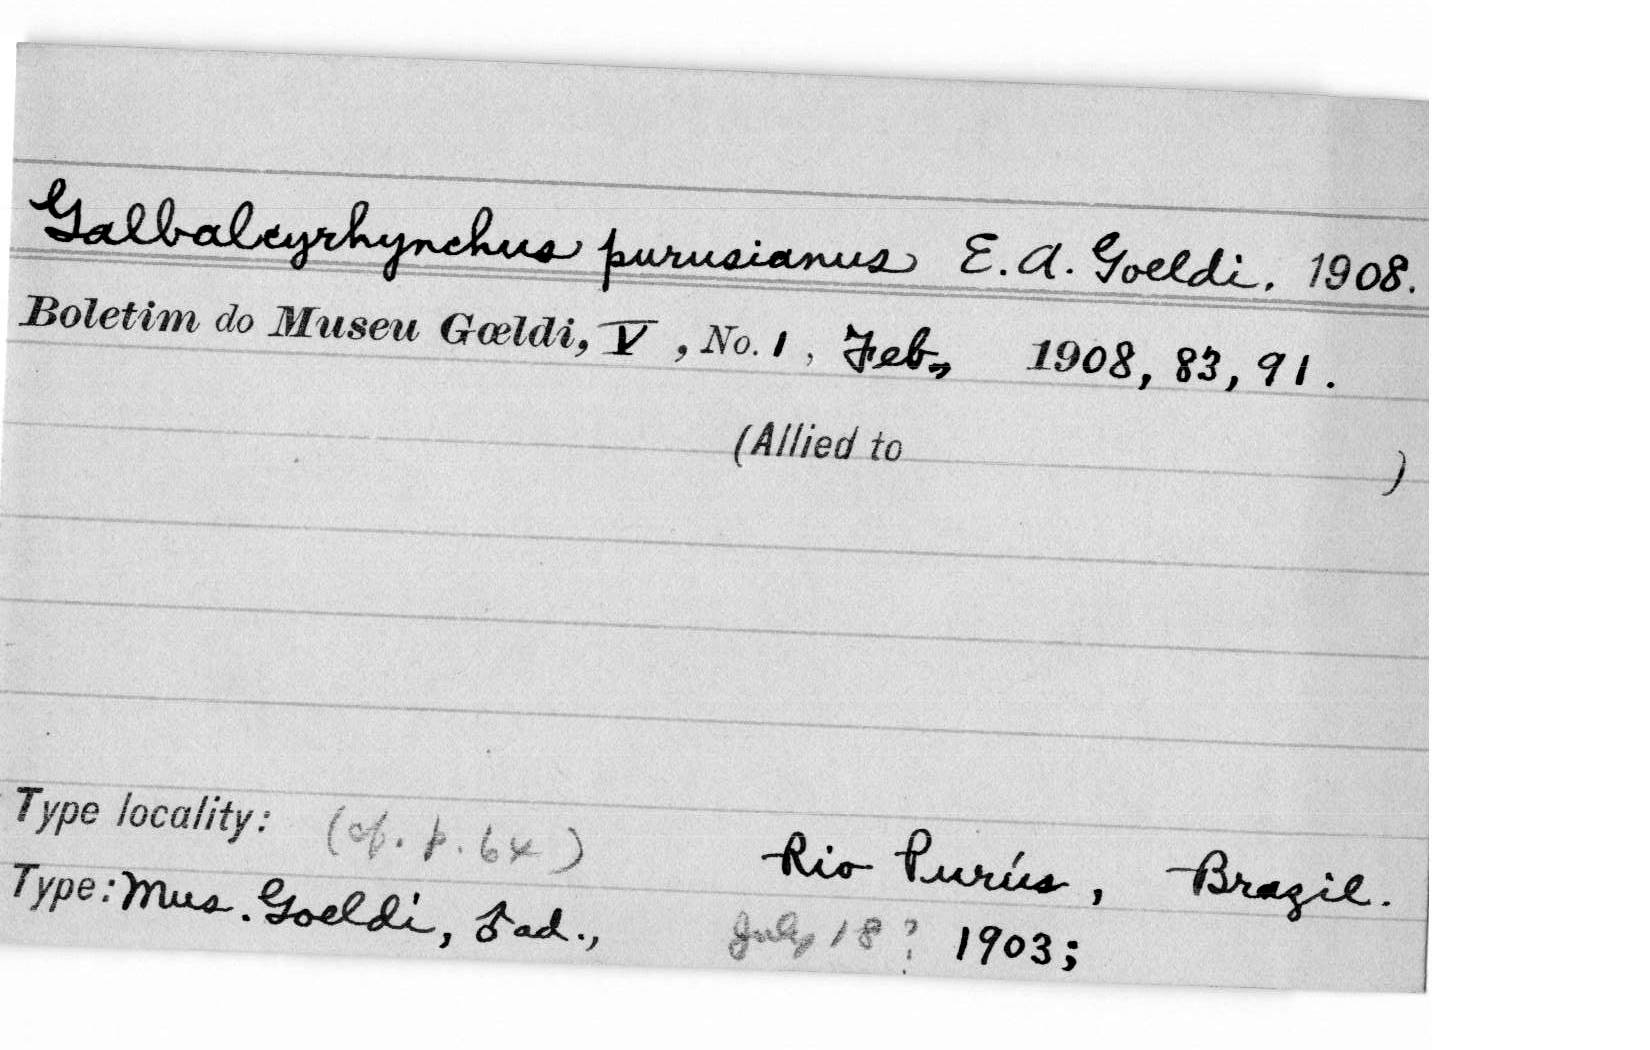 Galbalcyrhynchus purusianus E. A. Goeldi. 1908.
Boletim do Museu Gœldi, V, No. 1, Feb., 1908, 83, 91.
(Allied to )
Type locality: (cf. p. 64) Rio Purús, Brazil.
Type: Mus. Goeldi, ♂ ad., July 18? 1903;